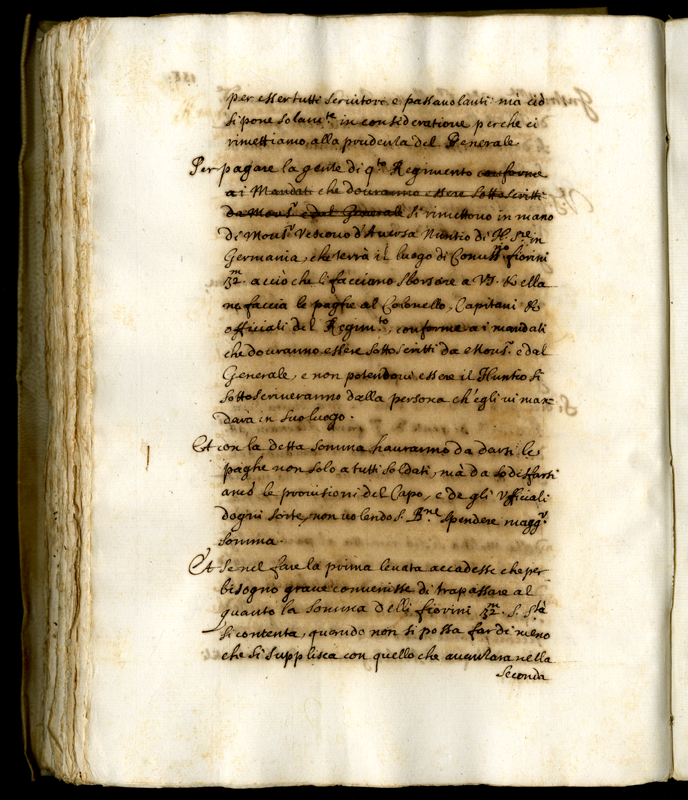 per esser tutti servitori e passavolanti: mà ciò
si pone solam.te in consideratione perche ci
rimettiamo alla prudenza del Generale
Per pagare la gente di q.to Regimento conforme
a i Mandati che dovranno essere sottoscritti
da Mons.r e dal Generale si rimettono in mano
di Mons.r Vescovo d'Aversa Nuntio di N. S.re in
Germania, che terrà il luogo di Comiss.rio fiorini
32.m acciò che li facciano sborsare a VS. & ella
ne faccia le paghe al Colonello, Capitani &
officiali del Regim.to, conforme a i mandati
che dovranno essere sottoscritti da Mons.r e dal
Generale, e non potendovi essere il Nuntio si
sottoscriveranno dalla persona ch'egli vi man
darà in suo luogo.
Et con la detta somma hauranno da darsi le
paghe non solo a tutti soldati, mà da sodisfarsi
anco le provisioni del Capo, e de gli Ufficiali
dogni sorte, non volendo S. B.ne spendere magg.r
somma.
Et se nel fare la prima levata accadesse che per
bisogno grave convenisse di trapassare al
quanto la somma delli fiorini 32.m S. S.tà
si contenta, quando non si possa far di meno
che si supplisca con quello che avanzara nella
seconda